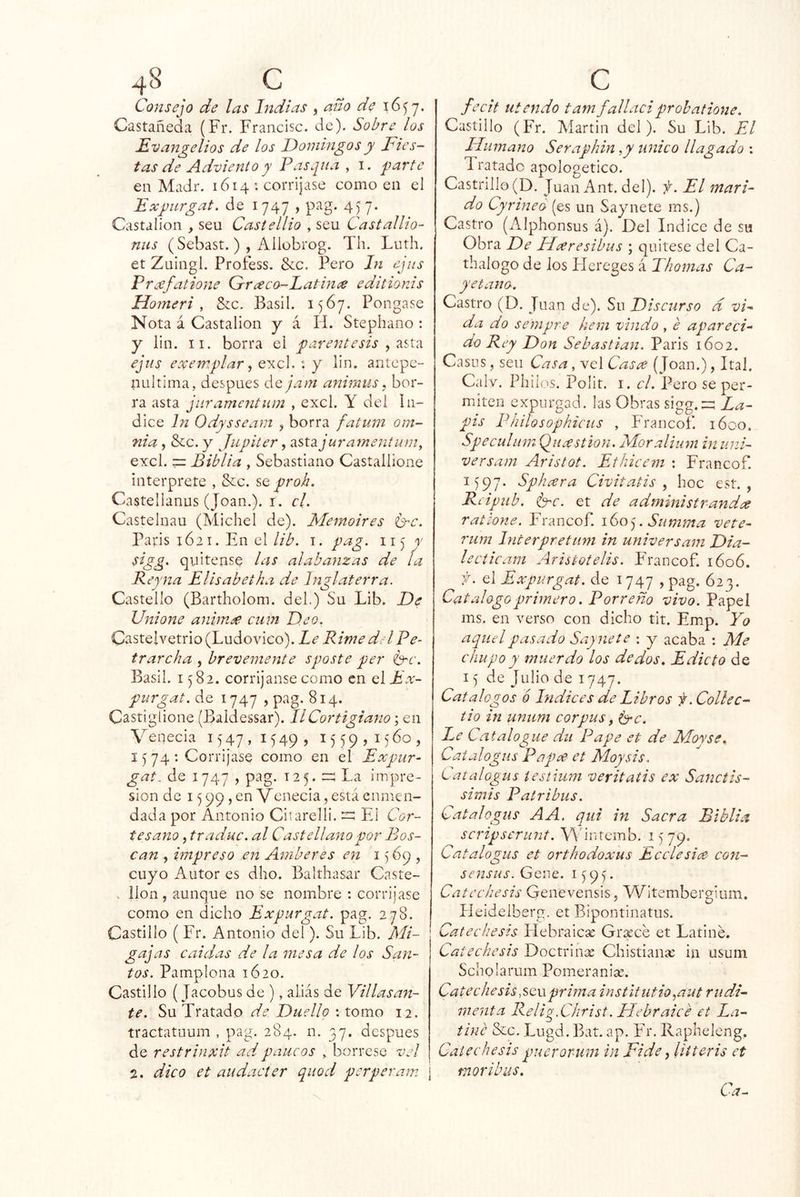 48 C
Consejo de las Indias , año de 1657.
Castañeda (Fr. Francisc. de). Sobre los
Evangelios de los Domingos y Fies-
tas de Adviento y Pasqua , 1. parte
en Madr. 1614 : corrijase como en el
Expurgat. de 1747 , pag. 457.
Castalion , seu Castellio , seu Castallio-
nus (Sebast. ) , Allobrog. Th. Luth.
et Zuingl. Profess. &c. Pero In ejus
Præfatione Græco-Latinæ editionis
Homeri , &c. Basil. 1567. Pongase
Nota á Castalion y á H. Stephano :
y lin. 11. borra el parentesis , asta
ejus exemplar, excl. : y lin. antepe-
nultima, despues de jam animus, bor-
ra asta juramentum , excl. Y del In-
dice In Odysseam , borra fatum om-
nia , &c. y Jupiter, asta juramentum,
excl. = Biblia , Sebastiano Castallione
interprete , &c. se proh.
Castellanus (Joan.). 1. cl.
Castelnau (Michel de). Memoires &c.
Paris 1621. En el lib. 1. pag. 115 y
sigg. quitense las alabanzas de la
Reyna Elisabetha de Inglaterra.
Castello (Bartholom. del.) Su Lib. De
Unione animæ cum Deo.
Castelvetrio (Ludovico). Le Rime del Pe-
trarcha , brevemente sposte per &c.
Basil. 1582. corrijanse como en el Ex-
purgat. de 1747 , pag. 814.
Castiglione (Baldessar). Il Cortigiano ; en
Venecia 1547, 1549, 1559, 1560,
1574 : Corrijase como en el Expur-
gat. de 1747 , pag. 125. = La impre-
sion de 1599, en Venecia, está enmen-
dada por Antonio Citarelli. = El Cor-
tesano , traduc. al Castellano por Bos-
can , impreso en Amberes en 1569 ,
cuyo Autor es dho. Balthasar Caste-
llon , aunque no se nombre : corrijase
como en dicho Expurgat. pag. 278.
Castillo ( Fr. Antonio del ). Su Lib. Mi-
gajas caidas de la mesa de los San-
tos. Pamplona 1620.
Castillo ( Jacobus de ) , aliás de Villasan-
te. Su Tratado de Duello : tomo 12.
tractatuum , pag. 284. n. 37. despues
de restrinxit ad paucos , borrese vel
2. dico et audacter quod perperam
C
fecit utendo tam fallaci probatione.
Castillo (Fr. Martin del ). Su Lib. El
Humano Seraphin , y unico llagado :
Tratado apologetico.
Castrillo (D. Juan Ant. del). ꝟ. El mari-
do Cyrineo (es un Saynete ms.)
Castro (Alphonsus á). Del Indice de su
Obra De Hæresibus ; quitese del Ca-
thalogo de los Hereges á Thomas Ca-
yetano.
Castro (D. Juan de). Su Discurso á vi-
da do sempre bem vindo , è apareci-
do Rey Don Sebastian. Paris 1602.
Casus , seu Casa , vel Casæ (Joan.), Ital.
Calv. Philos. Polit. 1. cl. Pero se per-
miten expurgad. las Obras sigg. = La-
pis Philosophicus , Francof. 1600.
Speculum Quæstion. Moralium in uni-
versam Aristot. Ethicem : Francof.
1597. Sphæra Civitatis , hoc est. ,
Reipub. &c. et de administrandæ
ratione. Francof. 1605. Summa vete-
rum Interpretum in universam Dia-
lecticam Aristotelis. Francof. 1606.
ꝟ. el Expurgat. de 1747 , pag. 623.
Catalogo primero. Porreño vivo. Papel
ms. en verso con dicho tit. Emp. Yo
aquel pasado Saynete : y acaba : Me
chupo y muerdo los dedos. Edicto de
15 de Julio de 1747.
Catalogos ó Indices de Libros ꝟ. Collec-
tio in unum corpus, &c.
Le Catalogue du Pape et de Moyse.
Catalogus Papæ et Moysis.
Catalogus testium veritatis ex Sanctis-
simis Patribus.
Catalogus AA. qui in Sacra Biblia
scripserunt. Wintemb. 1579.
Catalogus et orthodoxus Ecclesiæ con-
sensus. Gene. 1595.
Catechesis Genevensis , Witembergium.
Heidelberg. et Bipontinatus.
Catechesis Hebraicæ Græcè et Latinè.
Catechesis Doctrinæ Chistianæ in usum
Scholarum Pomeraniæ.
Catechesis, seu prima institutio, aut rudi-
menta Relig. Christ. Hebraicè et La-
tinè &c. Lugd. Bat. ap. Fr. Rapheleng.
Catechesis puerorum in Fide , litteris et
moribus.
Ca-